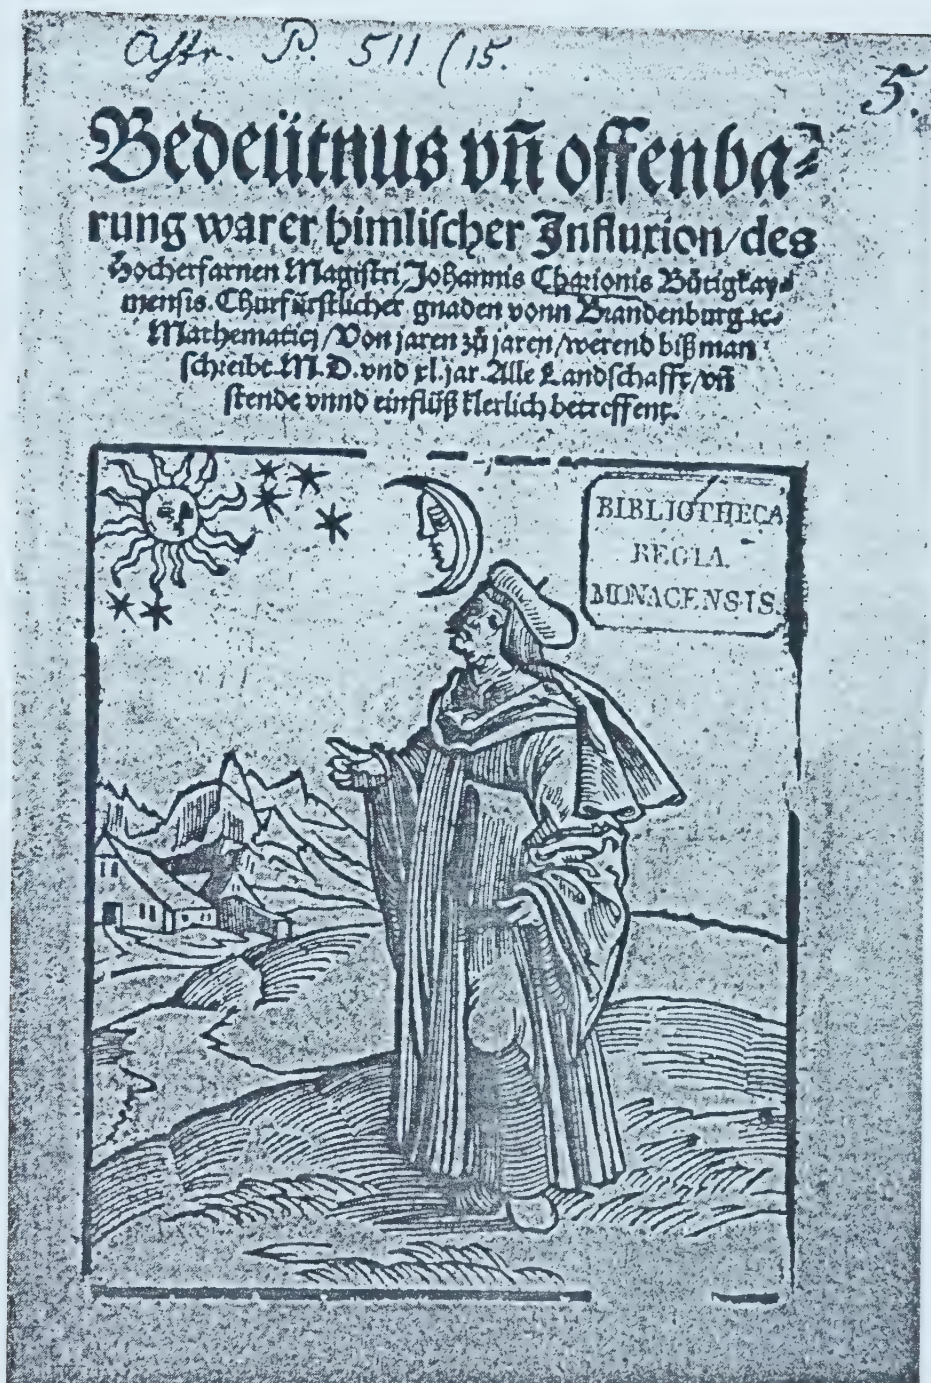 Astr. P. 511. (15.
5.
Bedeütnus vñ offenba⸗
rung warer himlischer Influxion/des
Hocherfarnen Magistri/Johannis Charionis Bütigkay⸗
mensis. Churfürstlicher gnaden vonn Brandenburg ⁊c.
Mathematici/Von jaren zů jaren/werend biß man
schreibt. M. D. vnd xl. jar. Alle Landschafft/vñ
stende vnnd einflüß klerlich betreffent.
BIBLIOTHECA
REGIA
MONACENSIS.